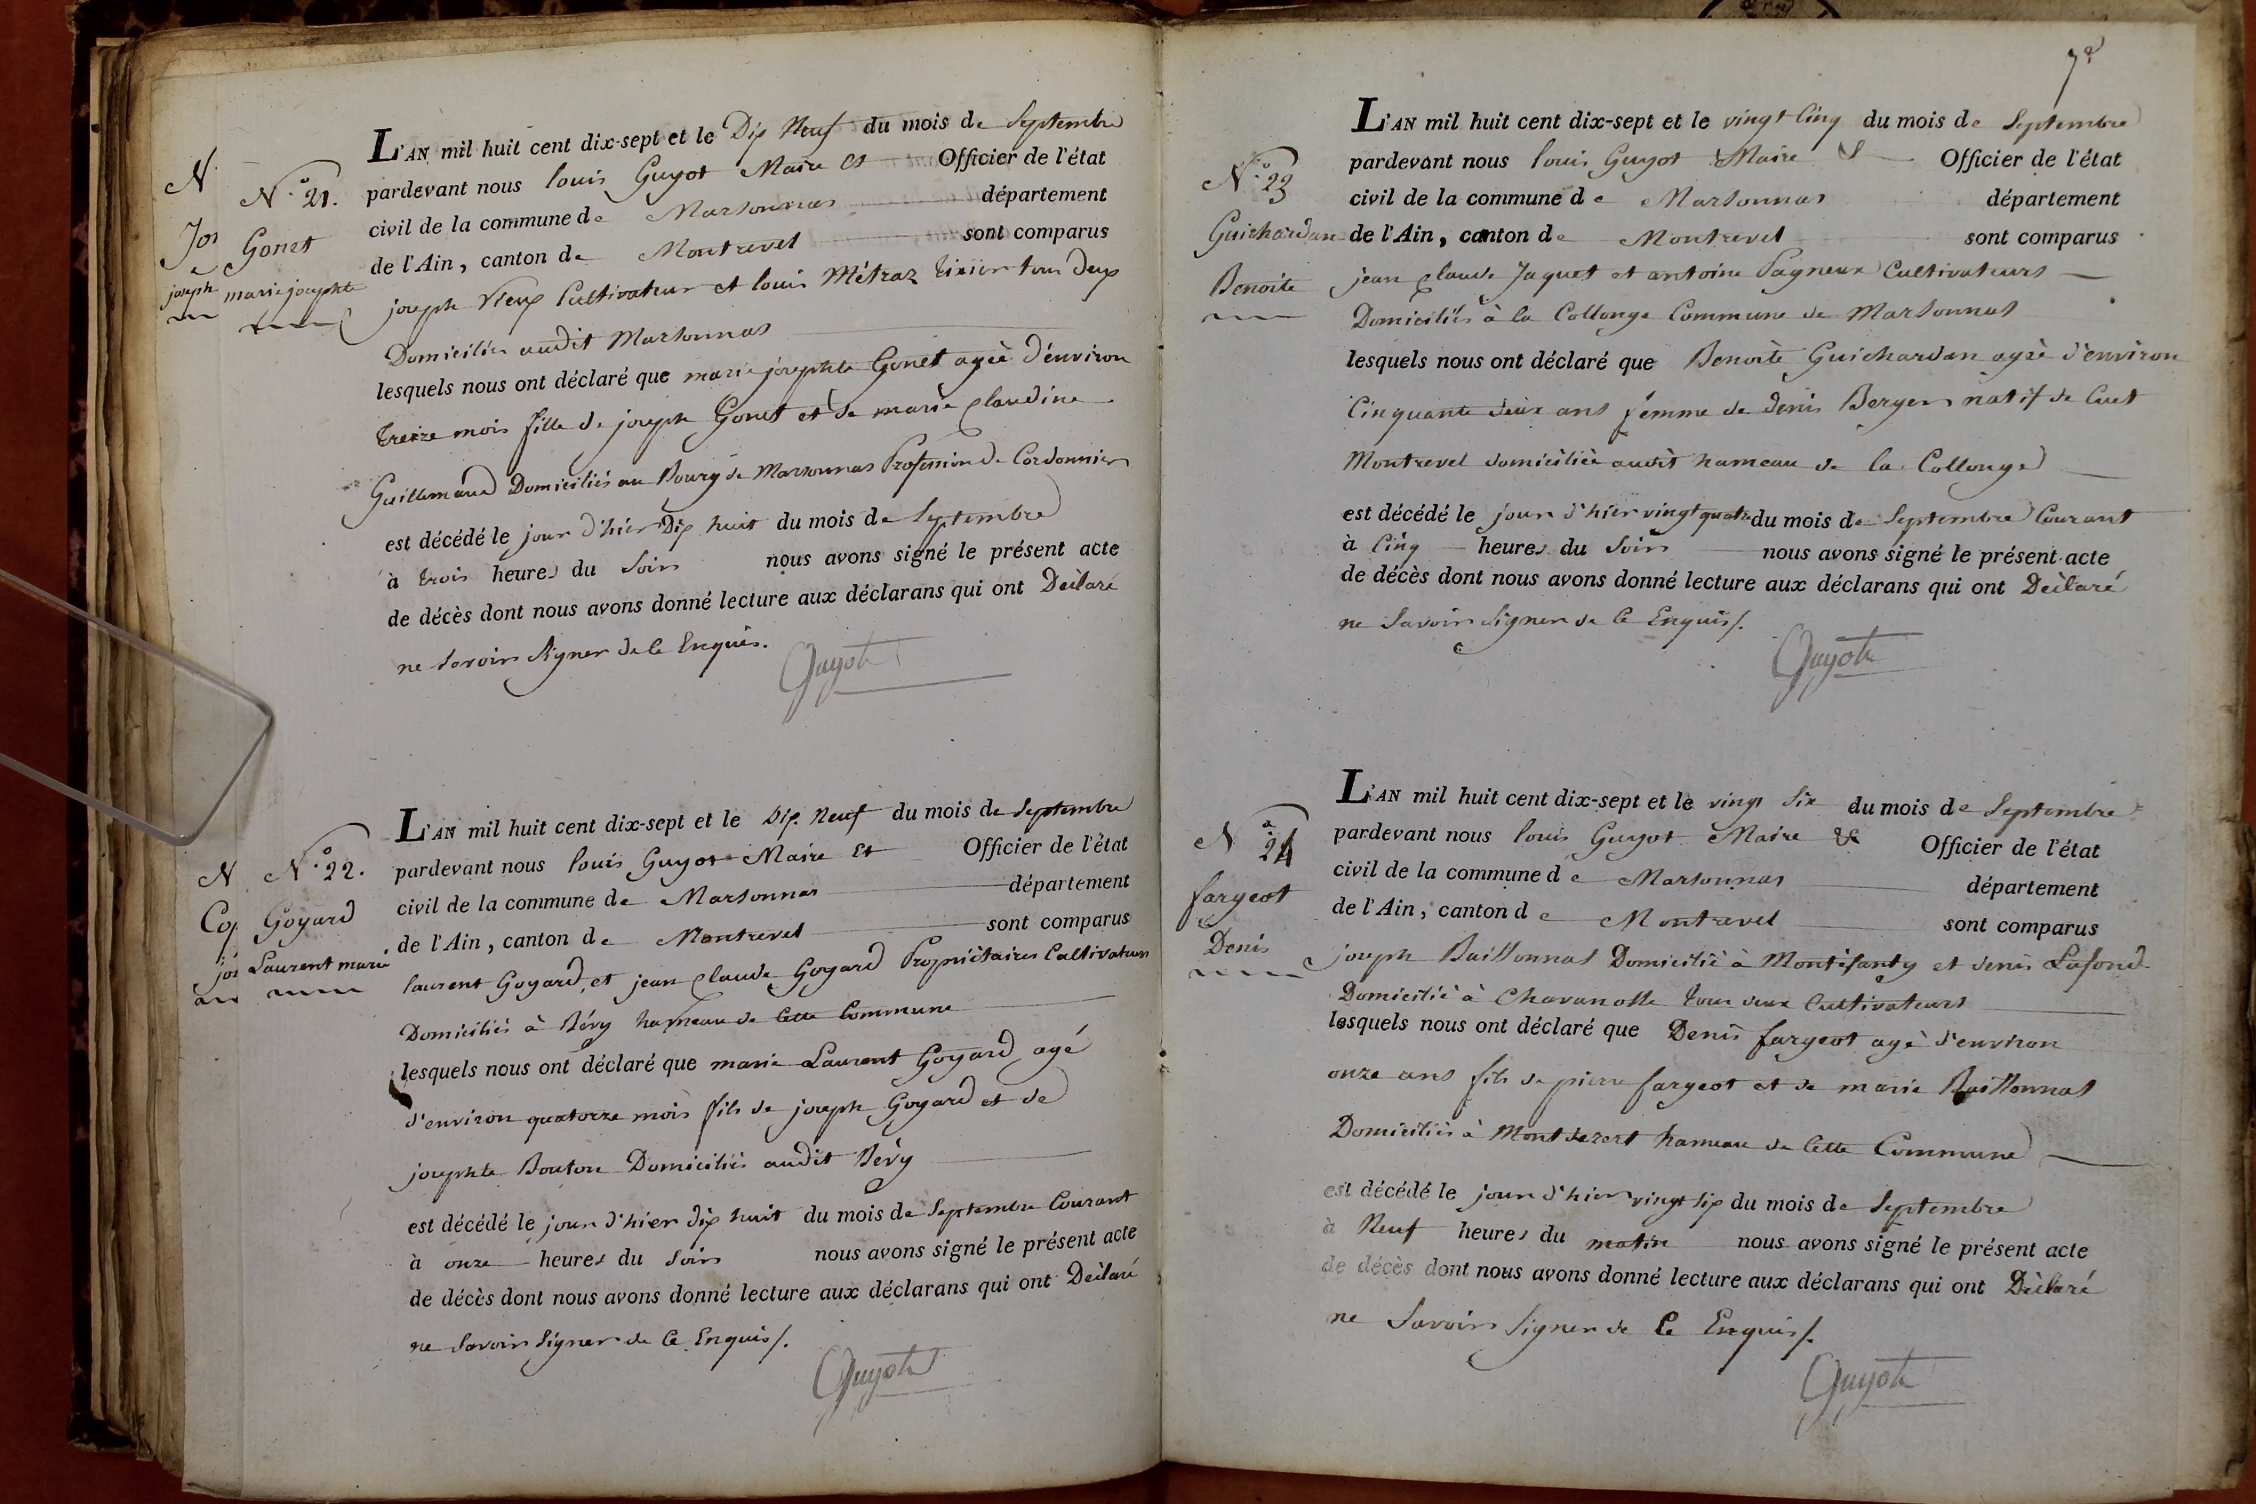 N.
N.° 21.
Jos
Gonet
joseph
marie josephte
L'AN mil huit cent dix-sept et le Dix Neuf du mois de Septembre
pardevant nous louis Guyot Maire et Officier de l'état
civil de la commune de Marsonnas département
de l'Ain, canton de Montrevel sont comparus
joseph Vieux Cultivateur et louis Métraz tixier tous deux
Domiciliés audit Marsonnas
lesquels nous ont déclaré que marie josephte Gonet ageè d'environ
treize mois fille de joseph Gonet et de marie Claudine
Guillemaud Domiciliés au Bourg de Marsonnas Profession de Cordonnier
est décédé le jour d'hier Dix huit du mois de Septembre
à trois heures du Soir nous avons signé le présent acte
de décès dont nous avons donné lecture aux déclarans qui ont Déclaré
ne Savoir Signer de Ce Enquis.
Guyot
N
N.° 22.
Coy
Goyard
jos
Laurent marie
L'AN mil huit cent dix-sept et le Dix Neuf du mois de Septembre
pardevant nous louis Guyot Maire et Officier de l'état
civil de la commune de Marsonnas département
de l'Ain, canton de Montrevel sont comparus
laurent Goyard et jean Claude Goyard Propriétaires Cultivateurs
Domiciliés à Bévy hameau de Cette Commune
lesquels nous ont déclaré que marie Laurent Goyard agé
d'environ quatorze mois fils de joseph Goyard et de
josephte Bouton Domiciliés audit Bévy
est décédé le jour d'hier dix huit du mois de Septembre Courant
à onze heures du Soir nous avons signé le présent acte
de décès dont nous avons donné lecture aux déclarans qui ont Déclaré
ne Savoir Signer de Ce Enquis/.
Guyot
N.° 23
Guichardan
Benoite
L'AN mil huit cent dix-sept et le vingt Cinq du mois de Septembre
pardevant nous louis Guyot Maire & Officier de l'état
civil de la commune de Marsonnas département
de l'Ain, canton de Montrevel sont comparus
jean Claude Jaquet et antoine Pagneux Cultivateurs
Domiciliés à la Collonge Commune de Marsonnas
lesquels nous ont déclaré que Benoite Guichardan ageè d'environ
Cinquante deux ans femme de denis Berger natif de Cuet
Montrevel domiciliée audit hameau de la Collonge
est décédé le jour d'hier vingt quatre du mois de Septembre Courant
à Cinq heures du Soir nous avons signé le présent acte
de décès dont nous avons donné lecture aux déclarans qui ont Déclaré
ne Savoir Signer de Ce Enquis/.
Guyot
N.° 24
fargeot
Denis
L'AN mil huit cent dix-sept et le vingt Six du mois de Septembre
pardevant nous louis Guyot Maire & Officier de l'état
civil de la commune de Marsonnas département
de l'Ain, canton de Montrevel sont comparus
joseph Baillonnat Domicilié à Montifanty et denis Lafond
Domicilié à Chavanosse tous deux Cultivateurs
lesquels nous ont déclaré que Denis fargeot agé d'environ
onze ans fils de pierre fargeot et de marie Baillonnat
Domiciliés à Montdezert hameau de Cette Commune
est décédé le jour d'hier vingt six du mois de Septembre
à Neuf heures du matin nous avons signé le présent acte
de décès dont nous avons donné lecture aux déclarans qui ont Déclaré
ne Savoir Signer de Ce Enquis/.
Guyot